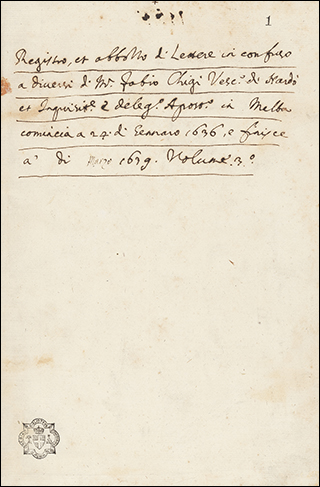 1
Registro, et abbozzo di Lettere in confuso
a diversi di Mr. Fabio Chigi Vesc.o di Nardò
et Inquisit.e e deleg.o Apos.o in Malta
comincia a 24. di Gennaro 1636, e finisce
a' di Marzo 1639. Volume. 3.o